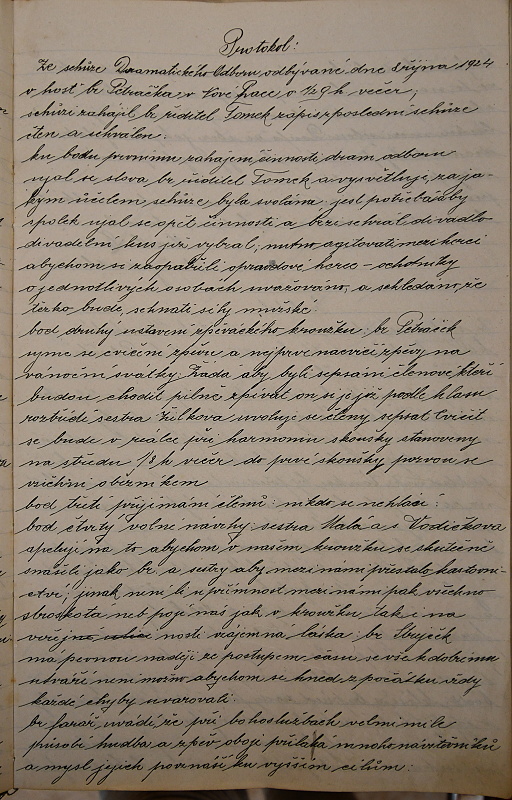 Protokol:
Ze schůze Dramatického Odboru odbývané dne 8 října 1924
v host. br Petráčka v Nové Pace o ½9 h večer;
schůzi zahájil br ředitel Tomek zápis z poslední schůze
čten a schválen.
ku bodu prvnímu zahájení činnosti dram odboru
ujal se slova br ředitel Tomek a vysvětluje, za ja-
kým účelem schůze byla svolána, jest potřeba aby
spolek ujal se opět činnosti a brzi sehrál divadlo
divadelní kus již vybral, nutno agitovati mezi herci
abychom si zaopatřili opravdové herce – ochotníky
o jednotlivých osobách uvažováno, a shledáno, že
těžko bude, sehnati síly mužské.
bod druhý ustavení zpěváckého kroužku: br Petráček
ujme se cvičení zpěvu a nejprve nacvičí zpěvy na
vánoční svátky. Žádá aby byli sepsáni členové kteří
budou chodit pilně zpívat on si je již podle hlasu
rozdělí sestra Žilková uvoluje se členy sepsat Cvičit
se bude v reálce při harmoniu zkoušky stanoveny
na středu ½8 h večer do prvé zkoušky pozvou se
všichni oběžníkem
bod třetí přijímání členů: nikdo se nehlásí:
bod čtvrtý volné návrhy sestra Malá a s Vodičková
apelují na to abychom v našem kroužku se skutečně
snášeli jako br. a sestry aby mezi námi přestalo kastovni-
ctví; jinak není li upřímnost mezi námi pak všechno
ztroskotá neb pojí nás jak v kroužku tak i na
veřejnosti vzájemná láska: br Stuječek
má pevnou naději že postupem času se vše k dobrému
utváří není možno abychom se hned z počátku vždy
každé chyby uvarovali.
br farář uvádí, že při bohoslužbách velmi mile
působí hudba a zpěv obojí přiláká mnoho návštěvníků
a mysl jejich povznáší ku vyšším cílům: